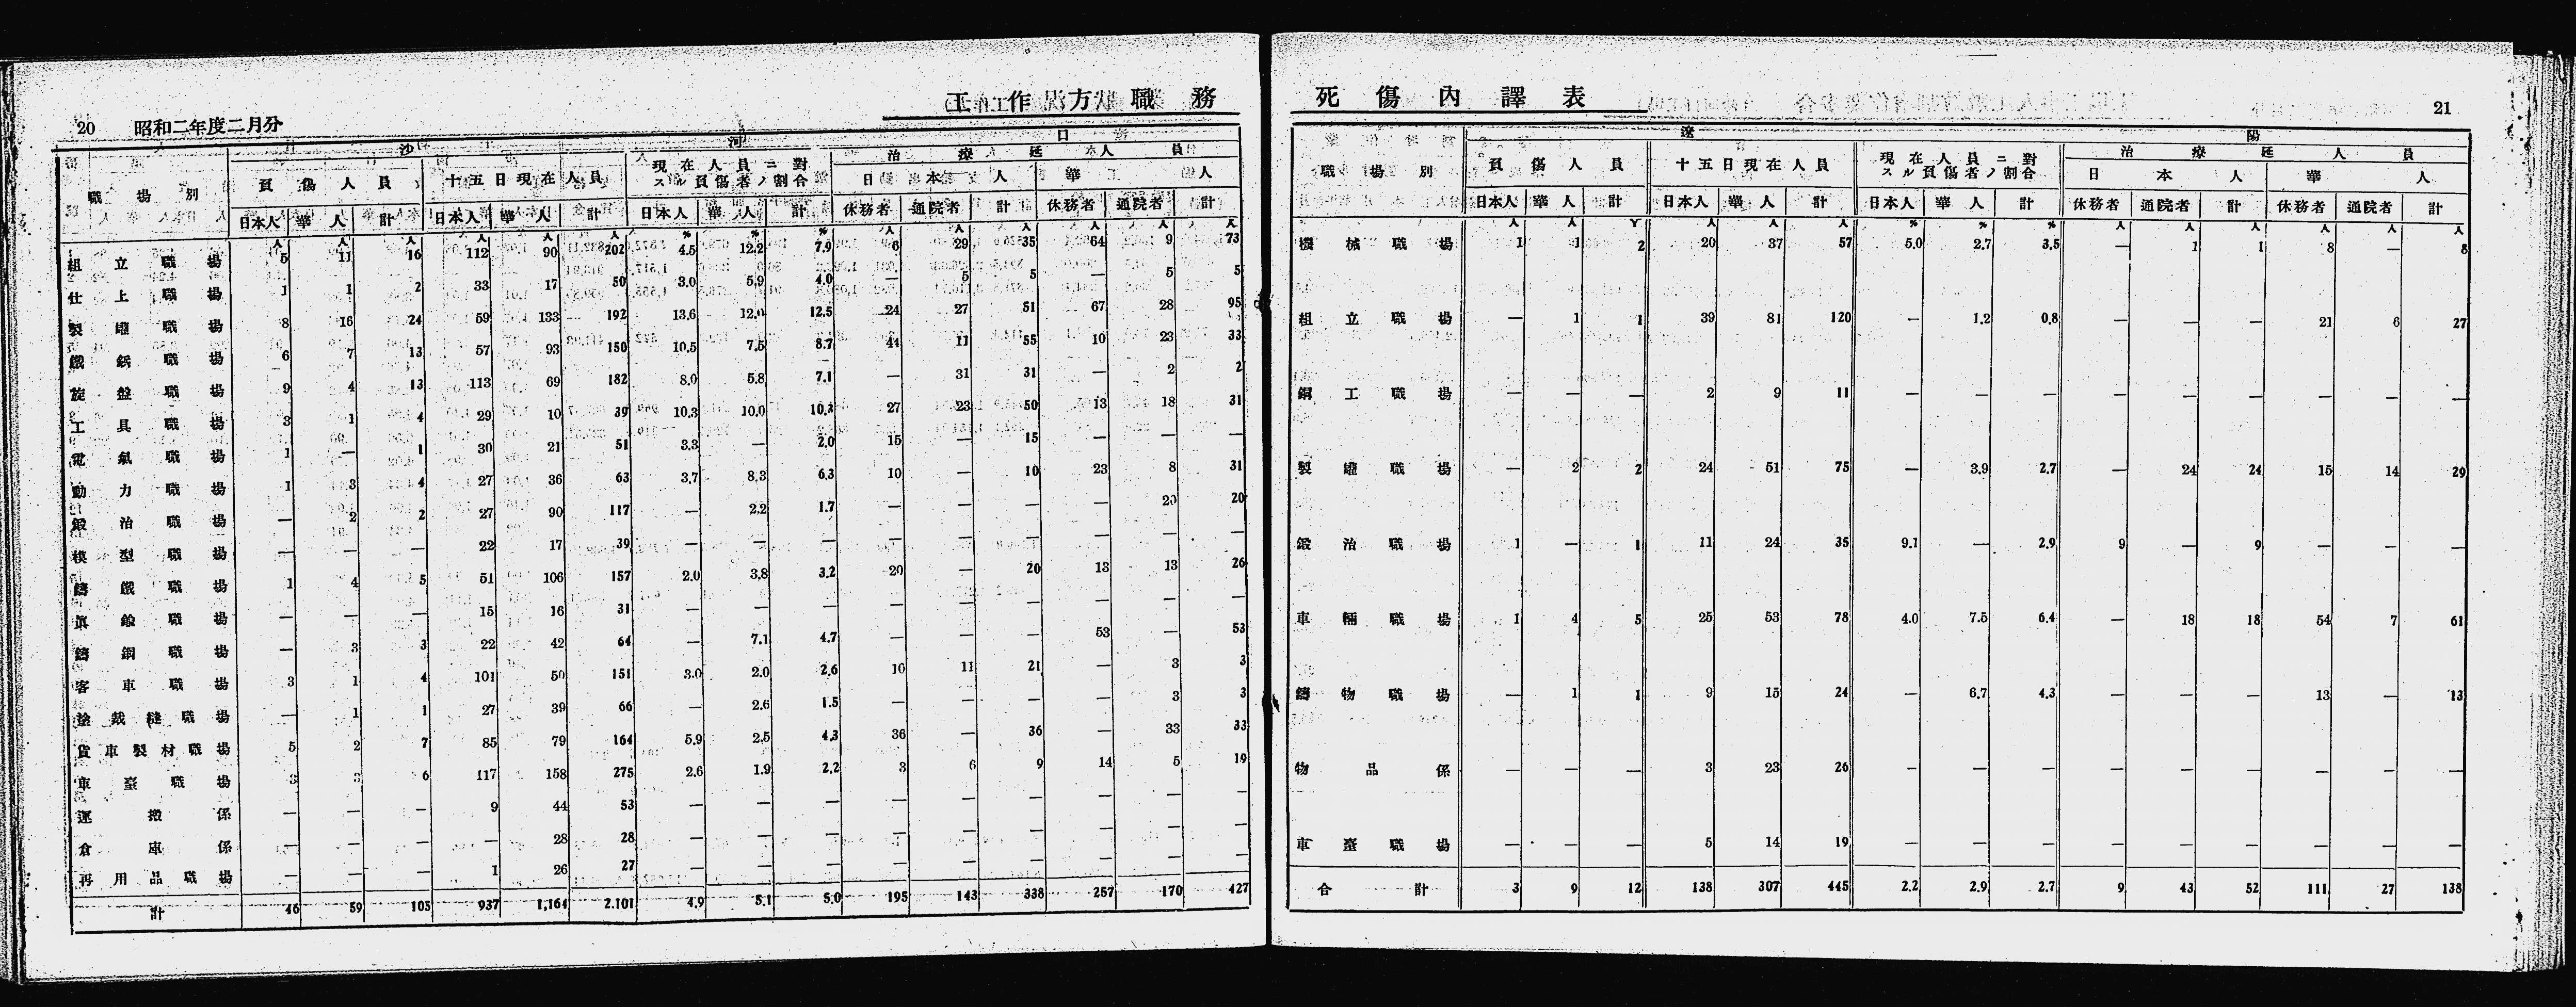 工作方職務
20 昭和二年度二月分
沙 河 口
職場別 負傷人員 十五日現在人員 現在人員ニ對スル負傷者ノ割合 治療延人員
日本人 華人
日本人 華人 計 日本人 華人 計 日本人 華人 計 休務者 通院者 計 休務者 通院者 計
人 人 人 人 人 人 % % % 人 人 人 人 人 人
組立職場 5 11 16 112 90 202 4.5 12.2 7.9 6 29 35 64 9 73
仕上職場 1 1 2 33 17 50 3.0 5.9 4.0 — 5 5 — 5 5
製罐職場 8 16 24 59 133 192 13.6 12.0 12.5 24 27 51 67 28 95
鐵鋲職場 6 7 13 57 93 150 10.5 7.5 8.7 44 11 55 10 23 33
旋盤職場 9 4 13 113 69 182 8.0 5.8 7.1 — 31 31 — 2 2
工具職場 3 1 4 29 10 39 10.3 10.0 10.3 27 23 50 13 18 31
電氣職場 1 — 1 30 21 51 3.3 — 2.0 15 — 15 — — —
動力職場 1 3 4 27 36 63 3.7 8.3 6.3 10 — 10 23 8 31
鍛冶職場 — 2 2 27 90 117 — 2.2 1.7 — — — — 20 20
模型職場 — — — 22 17 39 — — — — — — — — —
鑄鐵職場 1 4 5 51 106 157 2.0 3.8 3.2 20 — 20 13 13 26
眞鍮職場 — — — 15 16 31 — — — — — — — — —
鑄鋼職場 — 3 3 22 42 64 — 7.1 4.7 — — — 53 — 53
客車職場 3 1 4 101 50 151 3.0 2.0 2.6 10 11 21 — 3 3
塗裁縫職場 — 1 1 27 39 66 — 2.6 1.5 — — — — 3 3
貨車製材職場 5 2 7 85 79 164 5.9 2.5 4.3 36 — 36 — 33 33
車臺職場 3 3 6 117 158 275 2.6 1.9 2.2 3 6 9 14 5 19
運搬係 — — — 9 44 53 — — — — — — — — —
倉庫係 — — — — 28 28 — — — — — — — — —
再用品職場 — — — 1 26 27 — — — — — — — — —
計 46 59 105 937 1,164 2,101 4.9 5.1 5.0 195 143 338 257 170 427
死傷內譯表
21
遼 陽
職場別 負傷人員 十五日現在人員 現在人員ニ對スル負傷者ノ割合 治療延人員
日本人 華人
日本人 華人 計 日本人 華人 計 日本人 華人 計 休務者 通院者 計 休務者 通院者 計
人 人 人 人 人 人 % % % 人 人 人 人 人 人
機械職場 1 1 2 20 37 57 5.0 2.7 3.5 — 1 1 8 — 8
組立職場 — 1 1 39 81 120 — 1.2 0.8 — — — 21 6 27
銅工職場 — — — 2 9 11 — — — — — — — — —
製罐職場 — 2 2 24 51 75 — 3.9 2.7 — 24 24 15 14 29
鍛冶職場 1 — 1 11 24 35 9.1 — 2.9 9 — 9 — — —
車輛職場 1 4 5 25 53 78 4.0 7.5 6.4 — 18 18 54 7 61
鑄物職場 — 1 1 9 15 24 — 6.7 4.3 — — — 13 — 13
物品係 — — — 3 23 26 — — — — — — — — —
車臺職場 — — — 5 14 19 — — — — — — — — —
合計 3 9 12 138 307 445 2.2 2.9 2.7 9 43 52 111 27 138